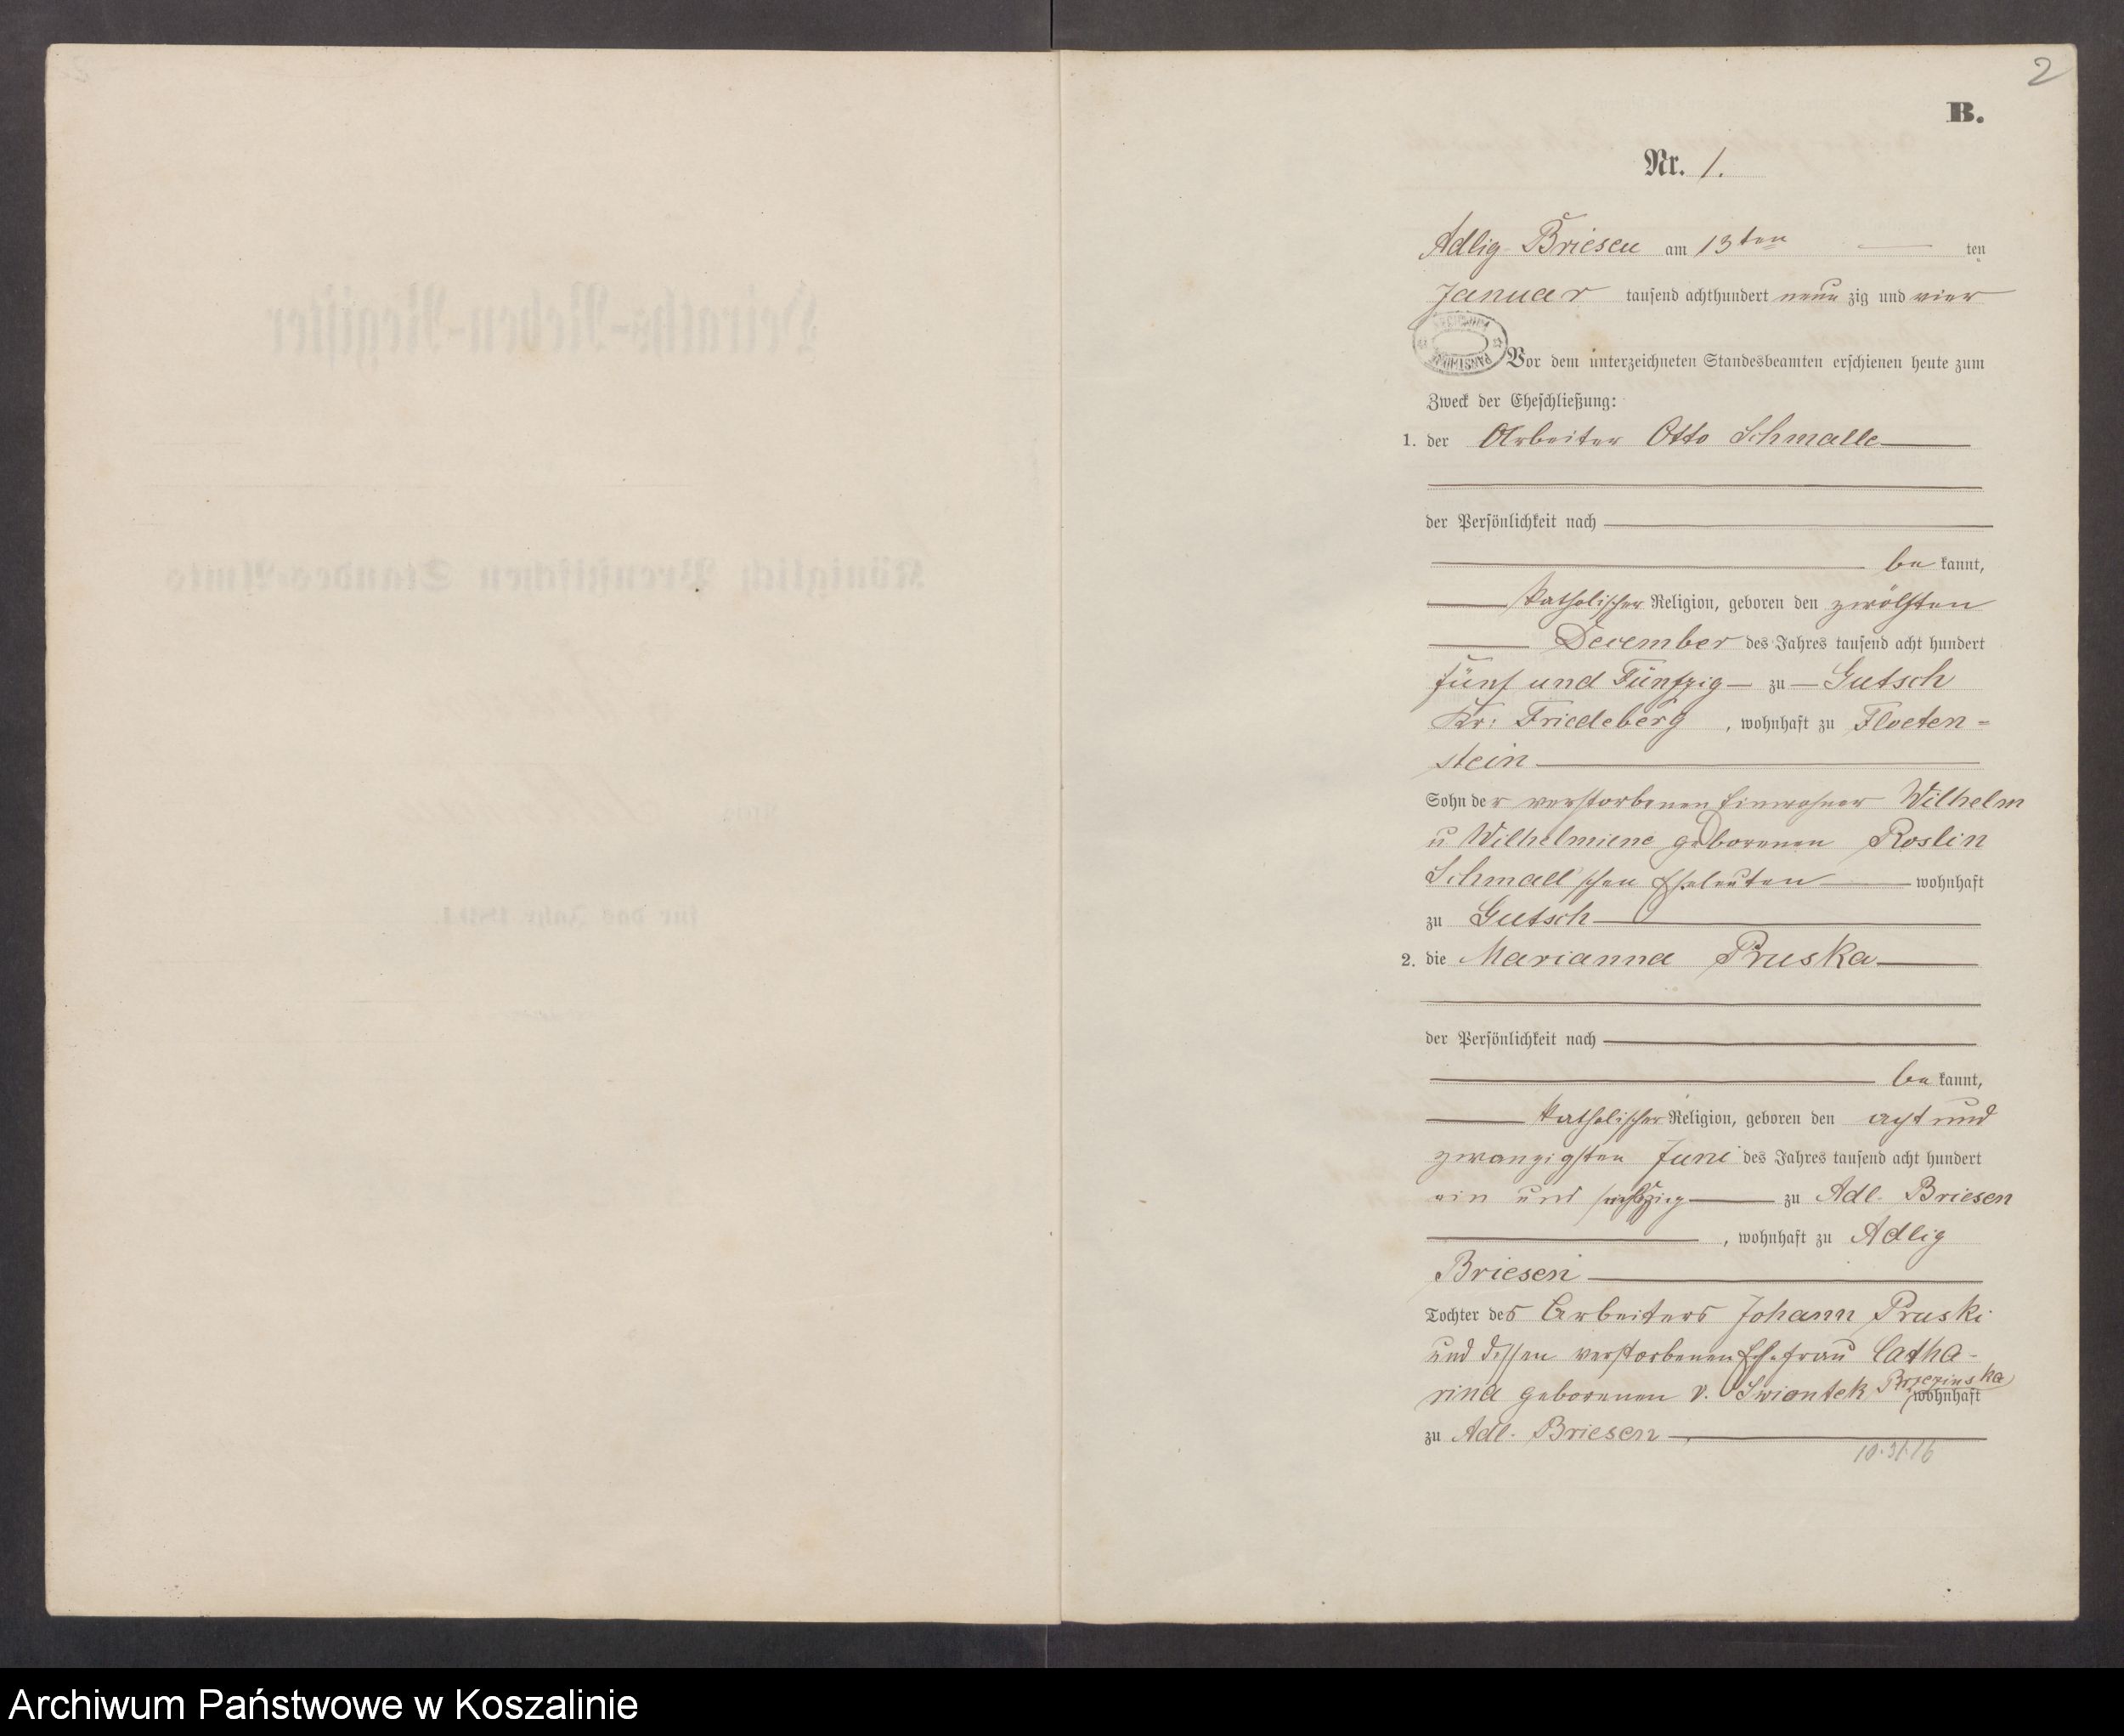 2
B.
Nr. 1.
Adlig Briesen am 13ten ten
Januar tausend achthundert neun zig und vier
Vor dem unterzeichneten Standesbeamten erschienen heute zum
Zweck der Eheschließung:
1. der Arbeiter Otto Schmalle
der Persönlichkeit nach
be kannt,
katholischer Religion, geboren den zwölften
December des Jahres tausend acht hundert
fünf und Fünfzig zu Gutsch
Kr: Friedeberg, wohnhaft zu Floeten=
stein
Sohn der verstorbenen Einwohner Wilhelm
u Wilhelmiene geborenen Roslin
Schmall'schen Eheleuten wohnhaft
zu Gutsch
2. die Marianna Pruska
der Persönlichkeit nach
be kannt,
katholischer Religion, geboren den acht und
zwanzigsten Juni des Jahres tausend acht hundert
ein und sechszig zu Adl. Briesen
, wohnhaft zu Adlig
Briesen
Tochter des Arbeiters Johann Pruski
und dessen verstorbenen Ehefrau Catha-
rina geborenen v. Swiontek Brzezinska wohnhaft
zu Adl. Briesen
Heiraths-Neben-Register
Königlich Preußischen Standes-Amts
für das Jahr 1894.
Archiwum Państwowe w Koszalinie